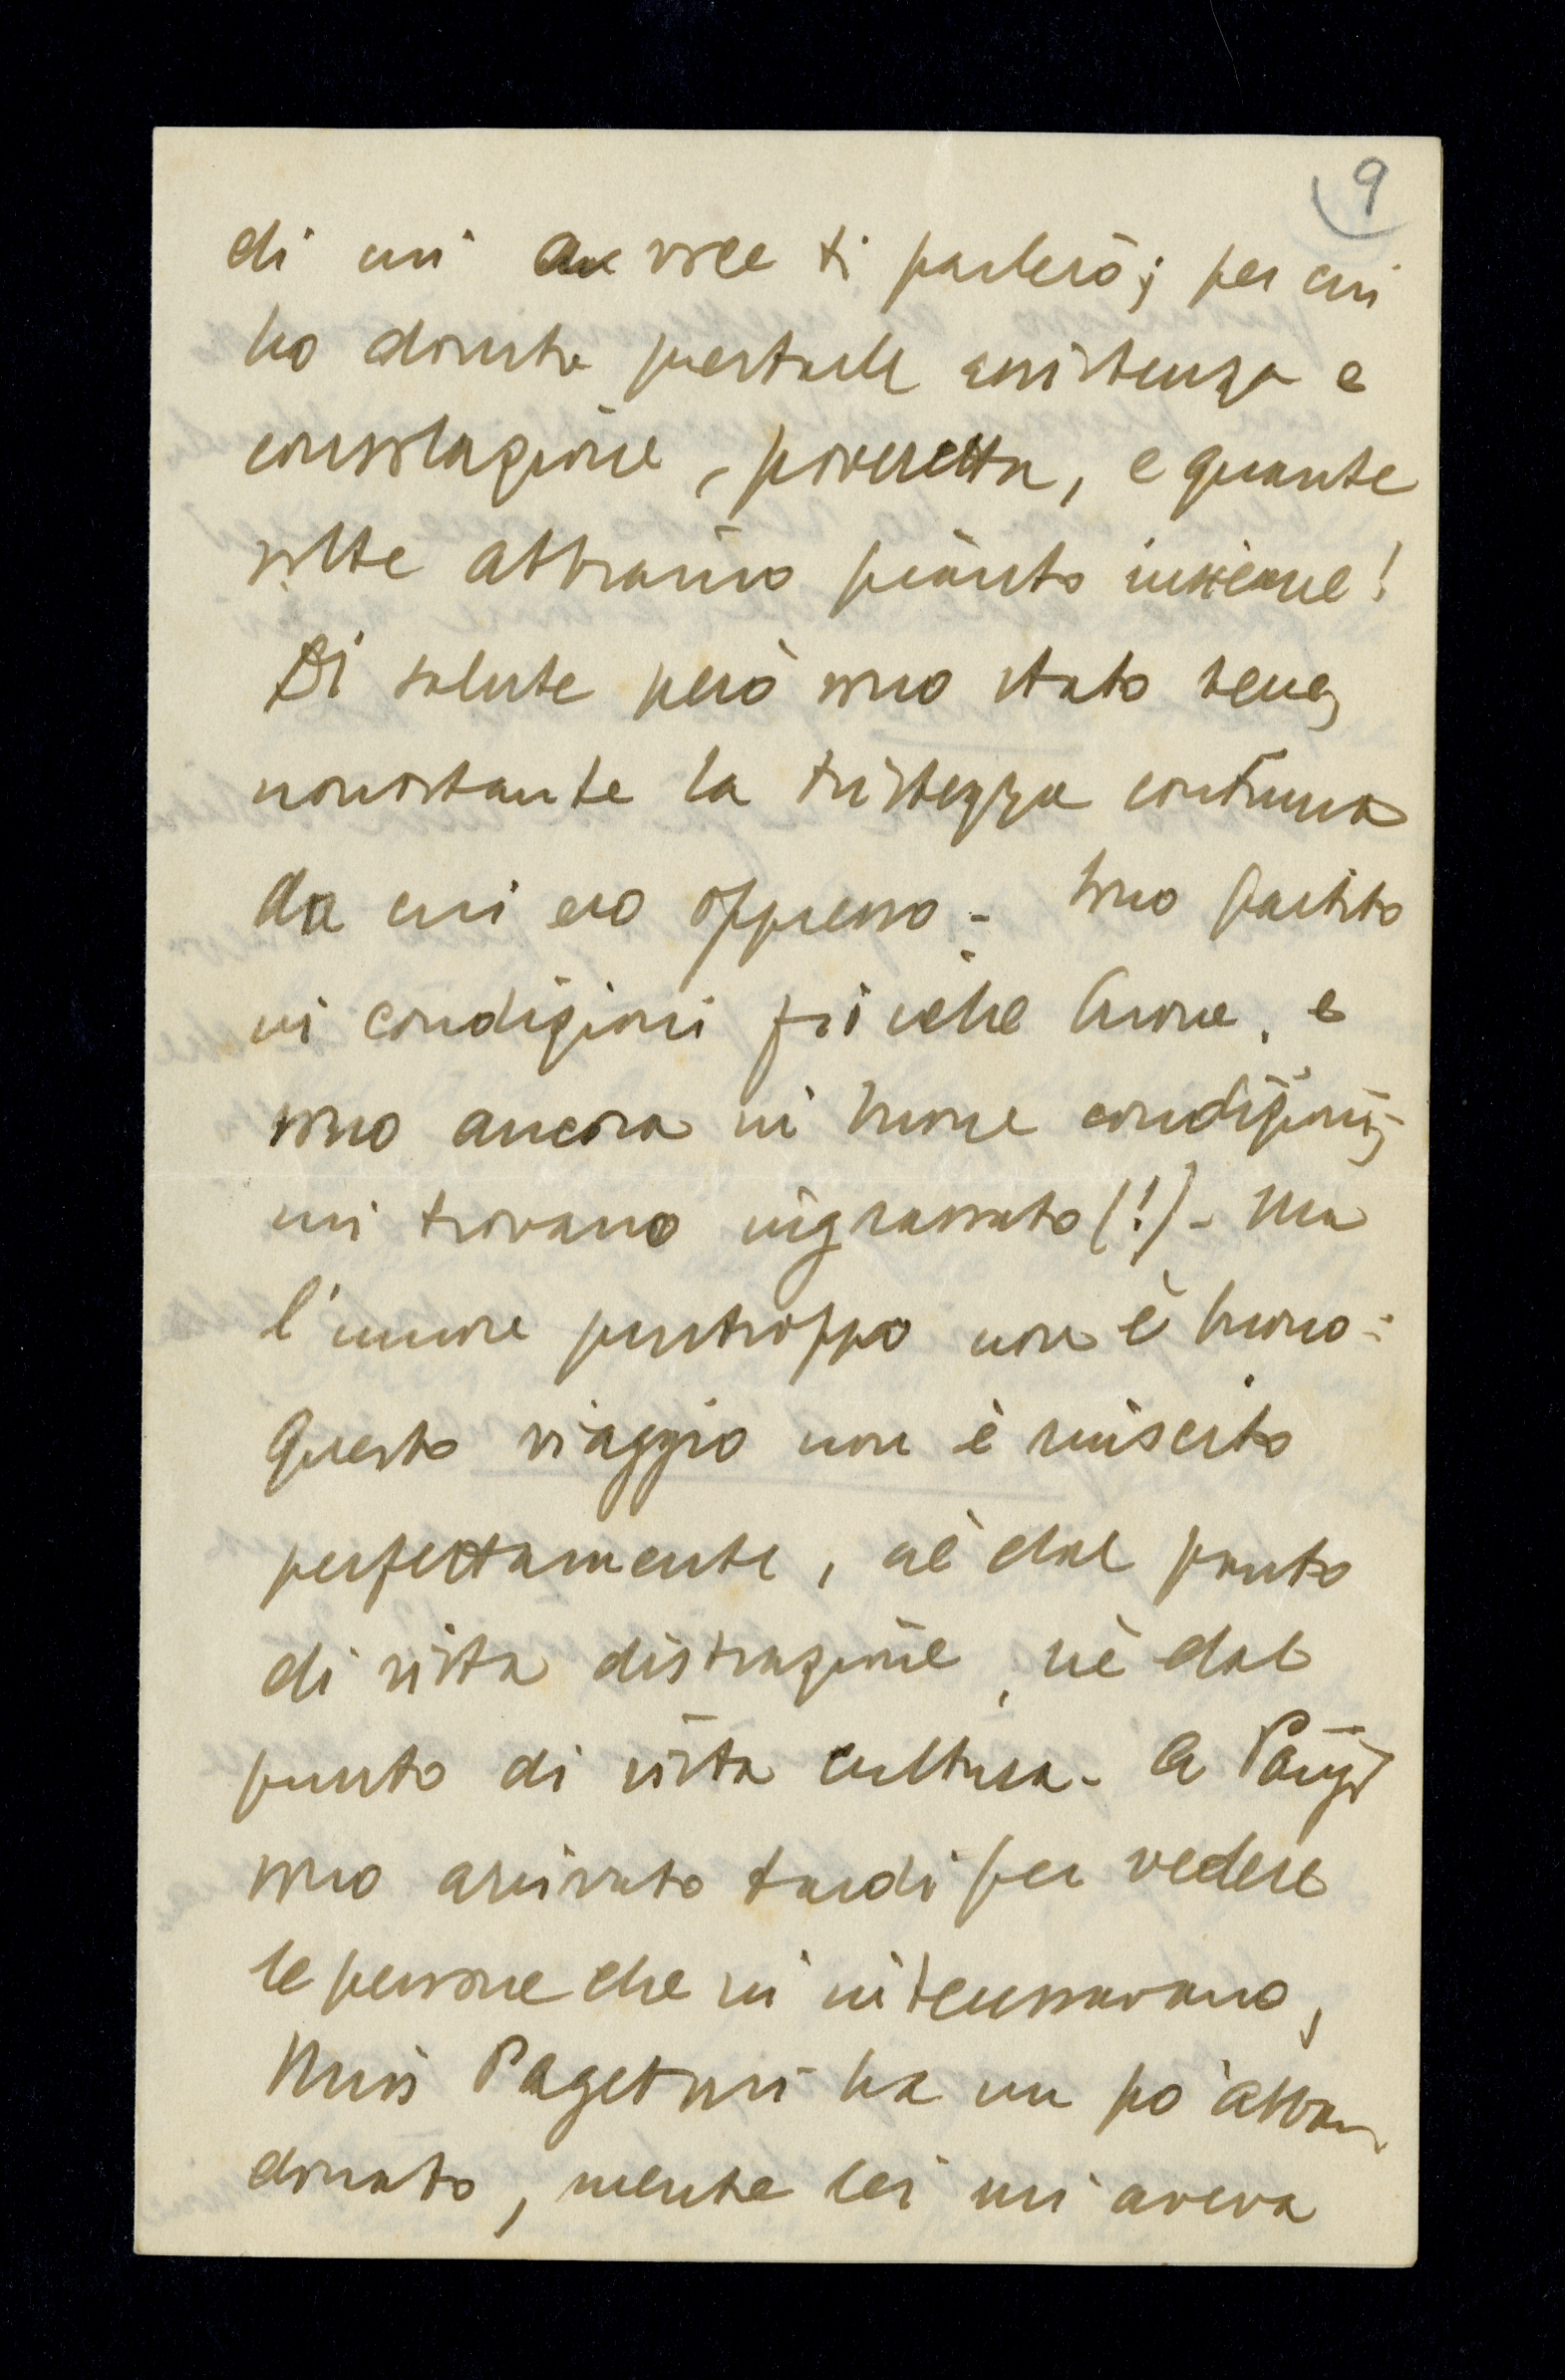 9
di cui a voce ti parlerò; per cui
ho dovuto prestarle assistenza e
consolazione, poveretta, e quante
volte abbiamo pianto insieme!
Di salute però sono stato bene,
nonostante la tristezza continua
da cui ero oppresso - Sono partito
in condizioni fisiche buone, e
sono ancora in buone condizioni;
mi trovano ingrassato (!) - Ma
l'umore purtroppo non è buono:
Questo viaggio non è riuscito
perfettamente, nè dal punto
di vista distrazione, nè dal
punto di vista cultura - A Parigi
sono arrivato tardi per vedere
le persone che mi interessavano,
Miss Paget mi ha un po' abban-
donato, mentre lei mi aveva